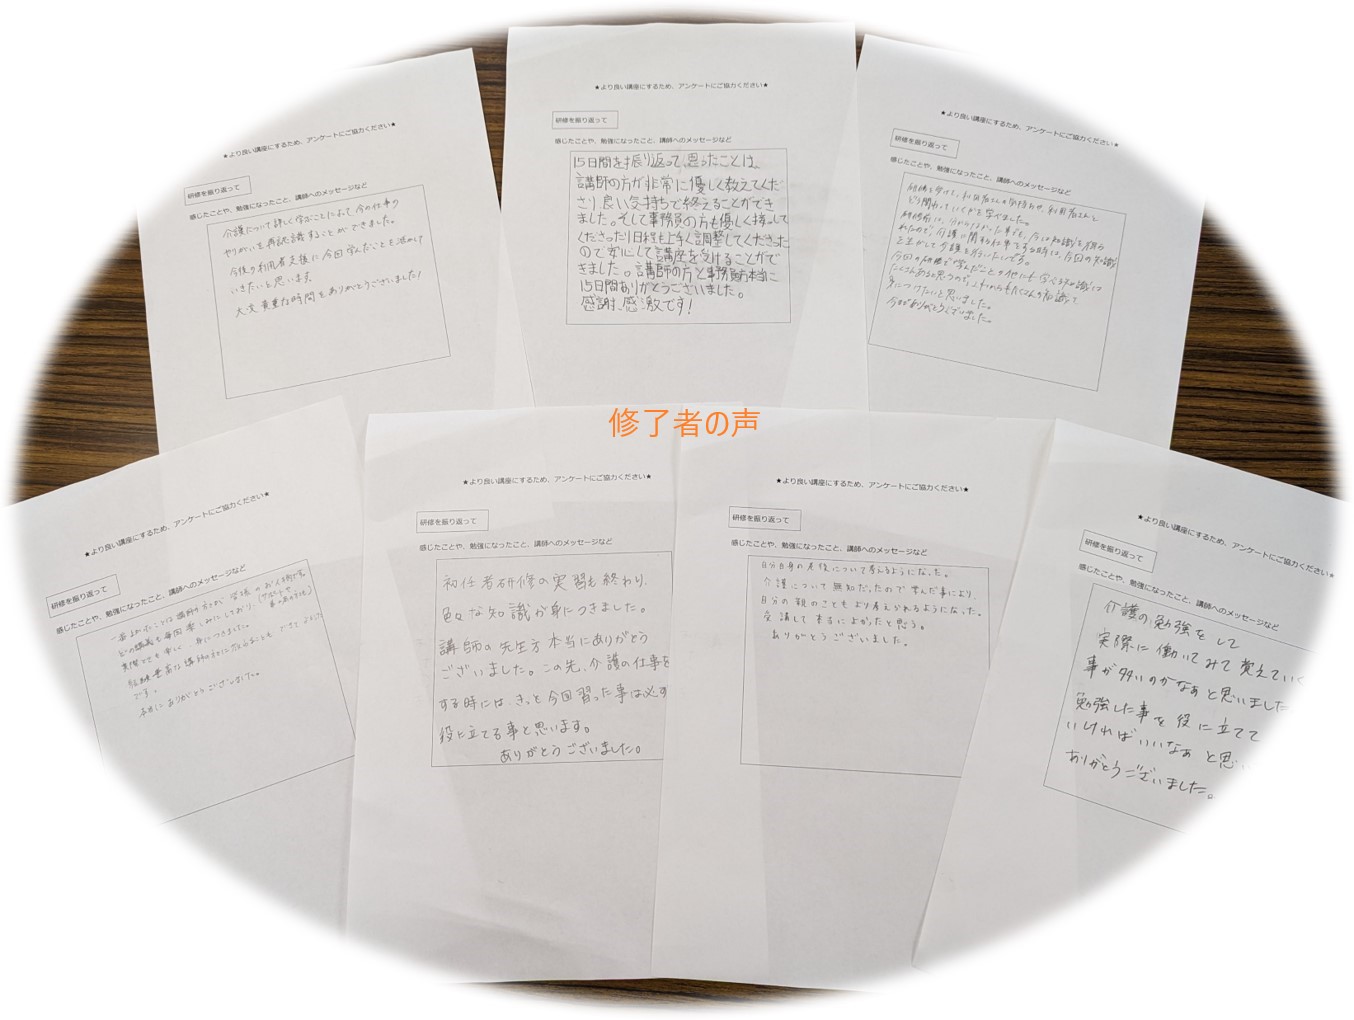 ★より良い講座にするため、アンケートにご協力ください★
研修を振り返って
感じたことや、勉強になったこと、講師へのメッセージなど
介護について詳しく学ぶことによって今の仕事の
やりがいを再認識することができました。
今後の利用者支援に今回学んだことを活かして
いきたいと思います。
大変貴重な時間をありがとうございました!
★より良い講座にするため、アンケートにご協力ください★
研修を振り返って
感じたことや、勉強になったこと、講師へのメッセージなど
15日間を振り返って思ったことは、
講師の方が非常に優しく教えてくだ
さり良い気持ちで終えることができ
ました。そして事務員の方も優しく接して
くださったり日程も上手く調整してくださった
ので安心して講座を受けることがで
きました。講師の方と事務員の方本当に
15日間ありがとうございました。
感謝、感激です!
★より良い講座にするため、アンケートにご協力ください★
研修を振り返って
感じたことや、勉強になったこと、講師へのメッセージなど
研修を受けて、利用者さんの気持ちや、利用者さんと
どう関わっていくかを学べました。
研修前は、分からなかった事も、今は知識を
ので、介護に関わる仕事をする時は、今回の知識
を生かして介護を行いたいです。
今回の研修で学んだことの他にも学べる知識は
たくさんあると思うので、これからもたくさんの知識を
身につけたいと思いました。
ありがとうございました。
修了者の声
★より良い講座にするため、アンケートにご協力ください★
研修を振り返って
感じたことや、勉強になったこと、講師へのメッセージなど
一番よかったことは講師の方々が
どの講義も毎回楽しみにしており、
身につきました。
経験豊富な講師の方に
です。
本当にありがとうございました。
★より良い講座にするため、アンケートにご協力ください★
研修を振り返って
感じたことや、勉強になったこと、講師へのメッセージなど
初任者研修の実習も終わり、
色々な知識が身につきました。
講師の先生方本当にありがとう
ございました。この先、介護の仕事を
する時には、きっと今回習った事は必ず
役に立てる事と思います。
ありがとうございました。
★より良い講座にするため、アンケートにご協力ください★
研修を振り返って
感じたことや、勉強になったこと、講師へのメッセージなど
自分自身の老後について考えるようになった。
介護について無知だったので学んだ事により、
自分の親のこともより考えられるようになった。
受講して本当によかったと思う。
ありがとうございました。
★より良い講座にするため、アンケートにご協力ください★
研修を振り返って
感じたことや、勉強になったこと、講師へのメッセージなど
介護の勉強をして
実際に働いてみて覚えていく
事が多いのかなぁと思いました
勉強した事を役に立てて
いければいいなぁと思い
ありがとうございました。